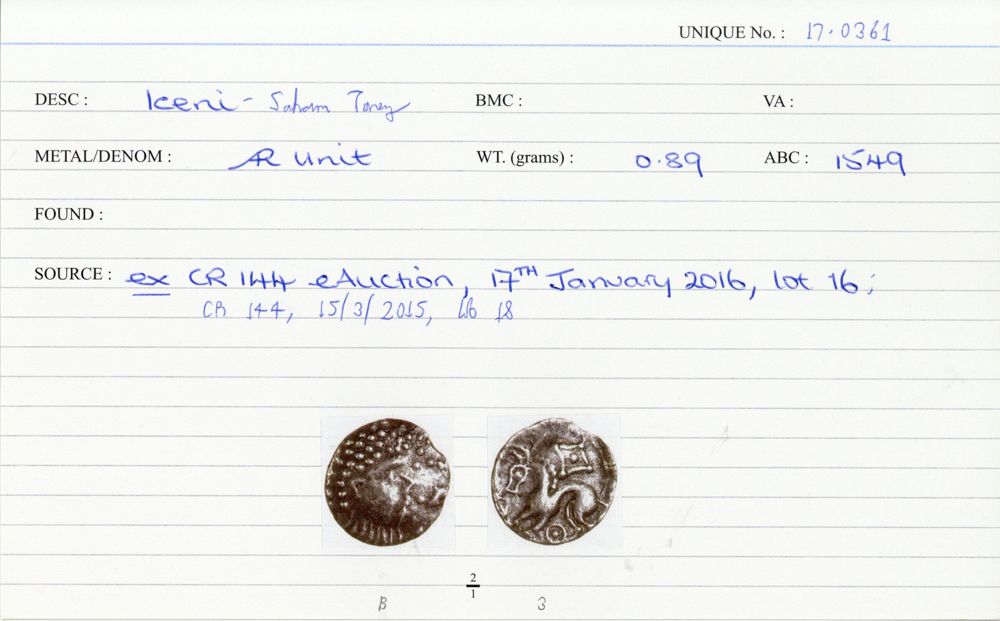 UNIQUE No. : 17.0361
DESC : Iceni - Saham Toney BMC : VA :
METAL/DENOM : AR Unit WT. (grams) : 0.89 ABC : 1549
FOUND :
SOURCE : ex CR 144 eAuction, 17TH January 2016, lot 16;
CR 144, 15/3/2015, 18
2
1
B 3